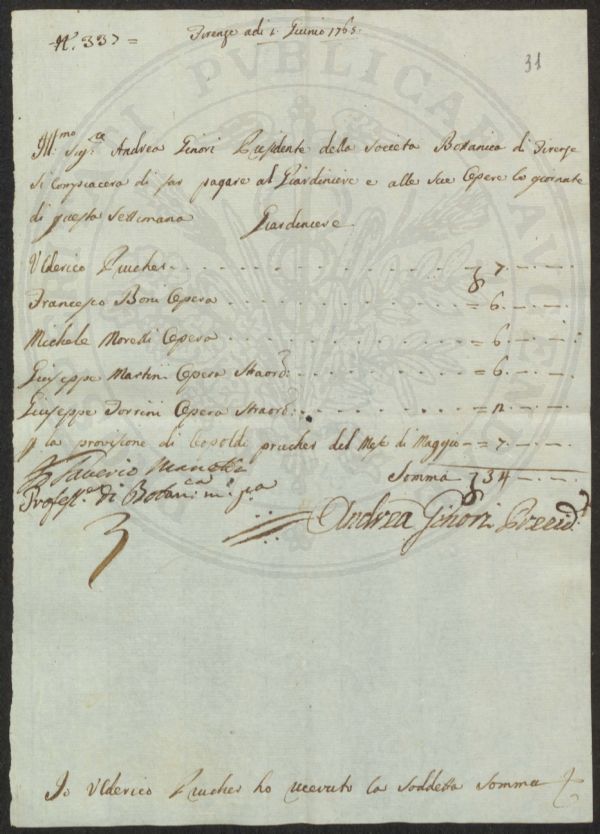 N.° 337 =
Firenze adi 1 Giunio 1765.
31
Ill.mo Sig.re Andrea Ginori Presidente della Società Bottanica di Firenze
si compiacera di far pagare al Giardiniere e alle sue Opere le giornate
di questa settimana Giardiniere
Ulderico Prucher = 7. — . —
Francesco Boni Opera = 6. — . —
Michele Moretti Opera = 6. — . —
Giuseppe Martini Opera Straord. = 6. — . —
Giuseppe Torrini Opera Straord. = 2. — . —
p la provisione di Leopoldo prucher del Mese di Maggio = 7. — . —
Somma 34 — . —
Saverio Manetti
Profess.e di Botan.ca m.o pa
Andrea Ginori Presid.
Io Ulderico Prucher ho ricevuto la soddetta somma